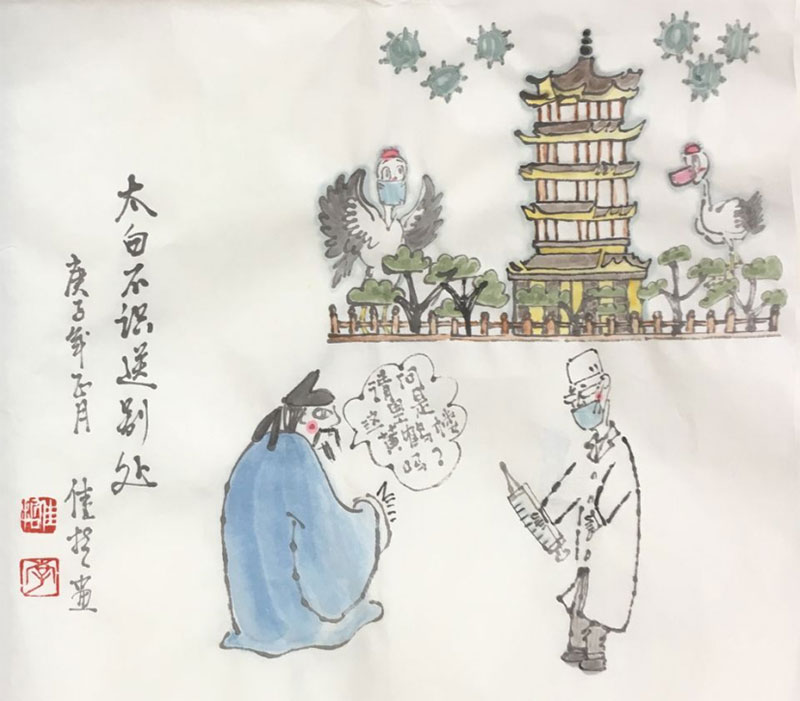 太白不识送别处
庚子年正月 佳哲画
请问
这里是
黄鹤楼
吗？